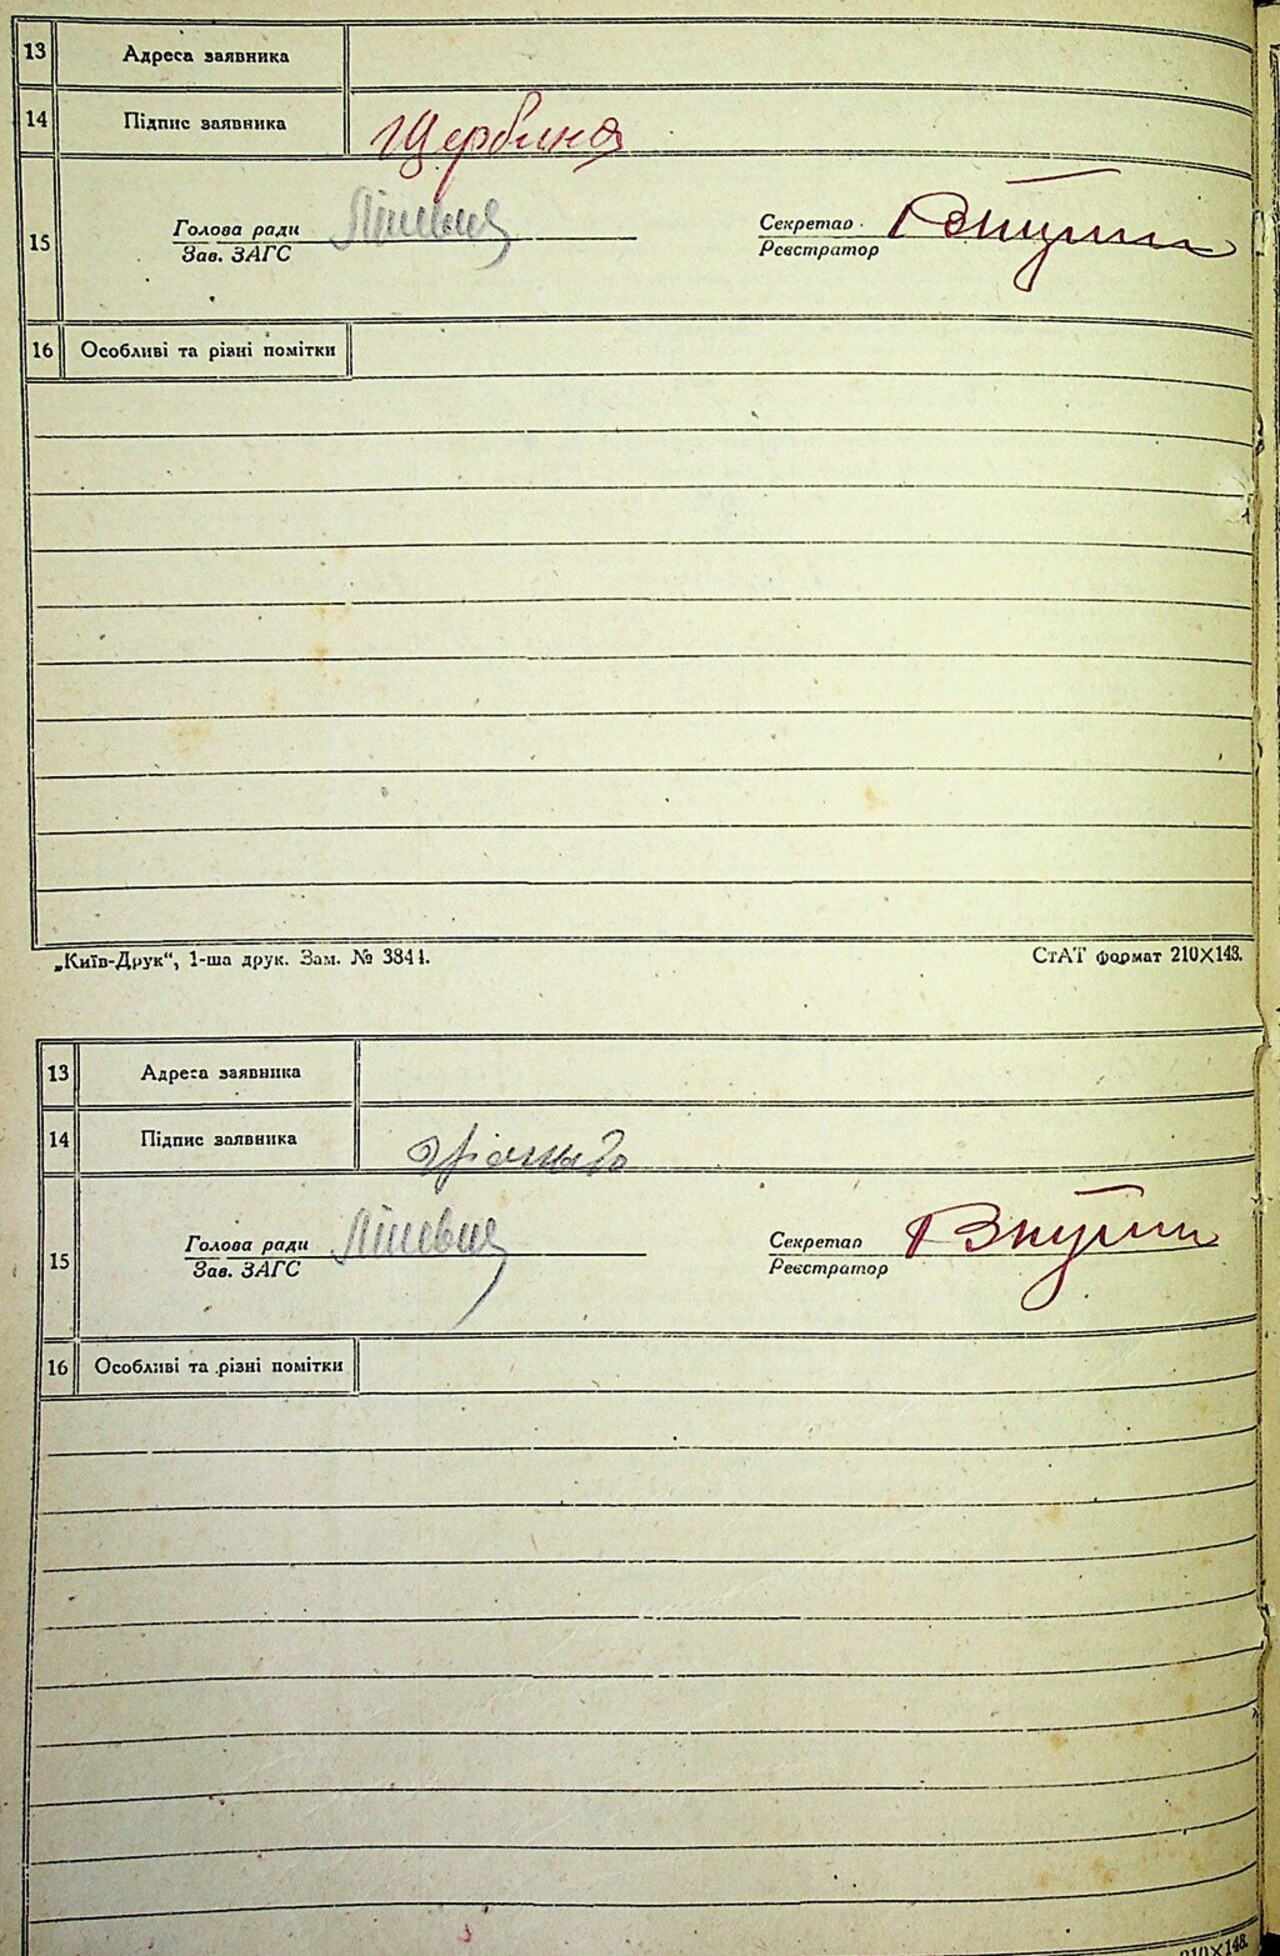 13 Адреса заявника
14 Підпис заявника Щербина
15 Голова ради Секретар
Зав. ЗАГС Реєстратор
16 Особливі та різні помітки
„Київ-Друк“, 1-ша друк. Зам. № 3844. СтАТ формат 210X148.
13 Адреса заявника
14 Підпис заявника
15 Голова ради Секретар
Зав. ЗАГС Реєстратор
16 Особливі та різні помітки
210X148.